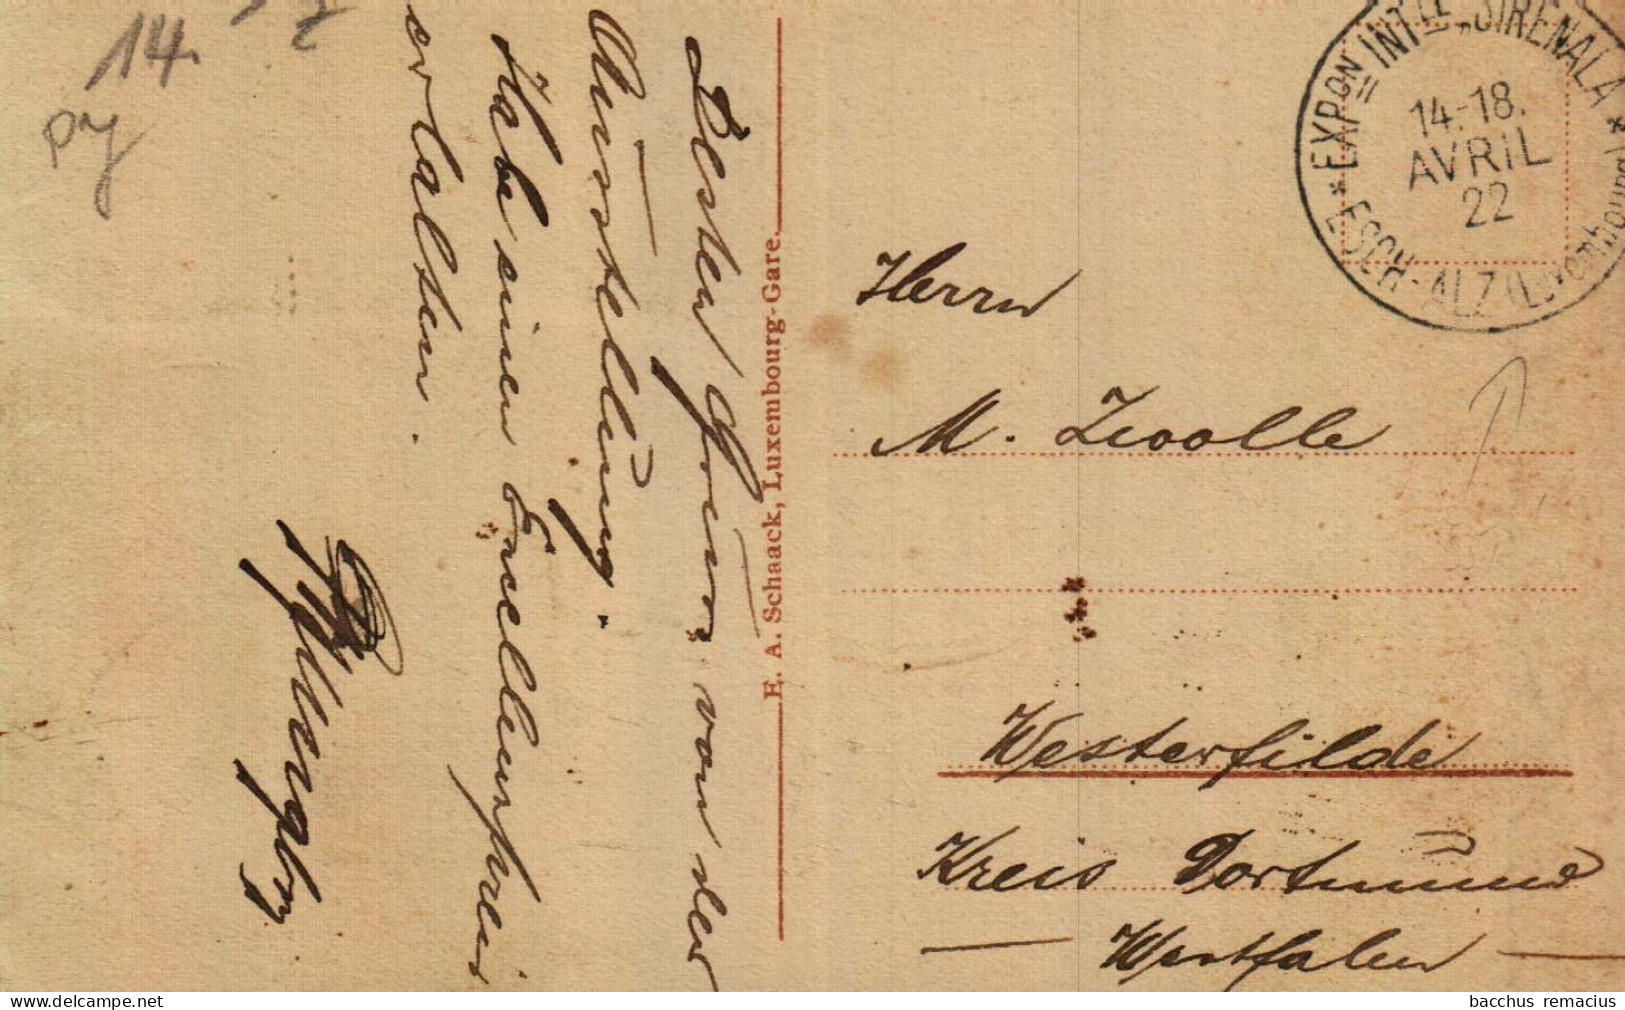 14.
py
Besten Gruss von der
Ausstellung.
Habe einen Excellenzpreis
erhalten.
E. A. Schaack, Luxembourg-Gare.
* EXPon INTLE „SIRENALA *
14-18.
AVRIL
22
ESCH-ALZ (Luxembourg)
Herrn
M. Zwolle
Westerfilde
Kreis Dortmund
Westfalen
bacchus remacius